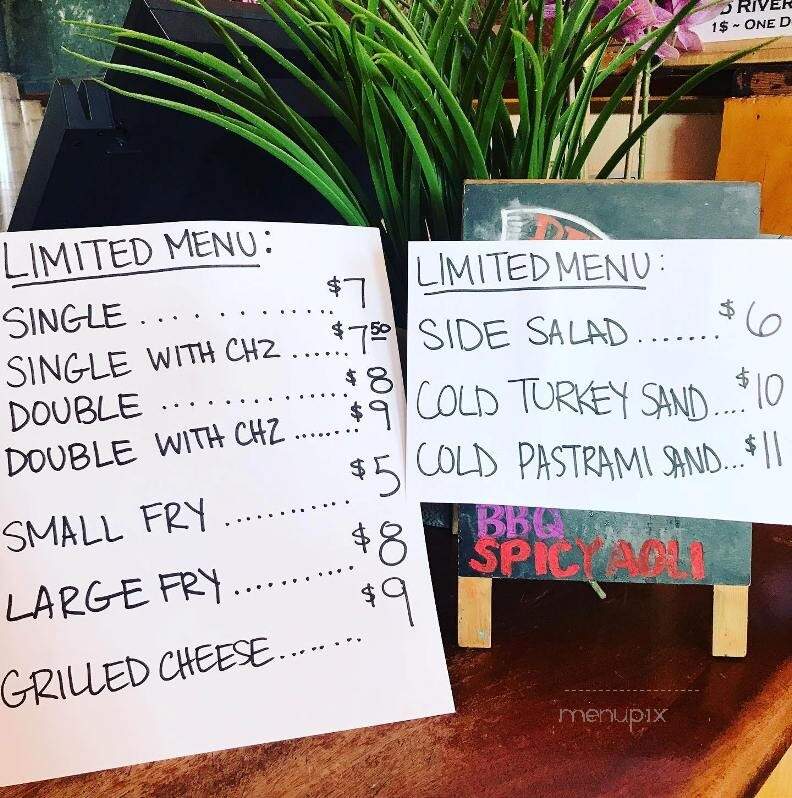 D RIVER
1$ ~ ONE D
LIMITED MENU:
SINGLE ............ $7
SINGLE WITH CHZ ...... $7.50
DOUBLE .............. $8
DOUBLE WITH CHZ ....... $9
SMALL FRY ........... $5
LARGE FRY .......... $8
GRILLED CHEESE....... $9
LIMITED MENU:
SIDE SALAD ....... $6
COLD TURKEY SAND.... $10
COLD PASTRAMI SAND... $11
BBQ
SPICY AOLI
menupix